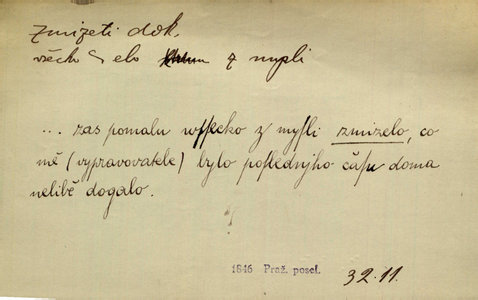 zmizeti dok.
všecko ~elo z mysli
... zas pomalu wssecko z mysli zmizelo, co
mě (vypravovatele) bylo poslednjho času doma
nelibě dogalo.
1846 Praž. posel. 32.11.